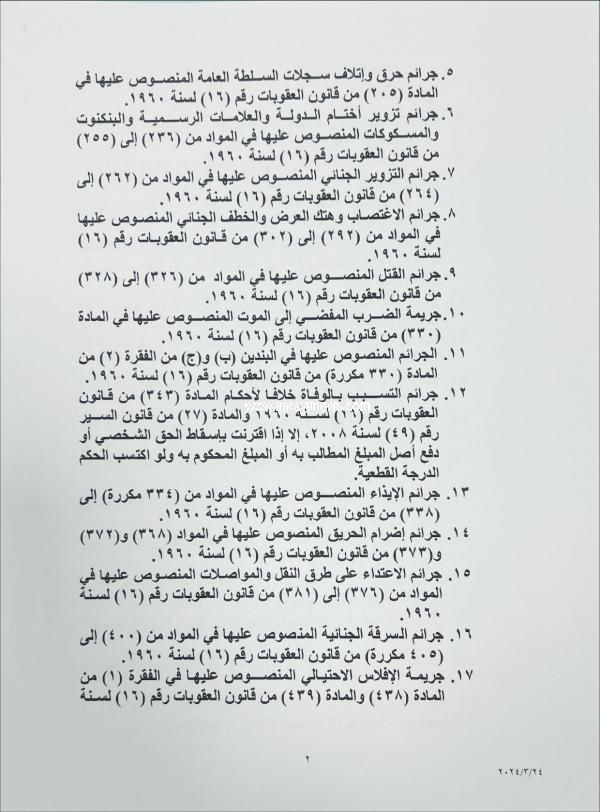 ٥. جرائم حرق وإتلاف سجلات السلطة العامة المنصوص عليها في
المادة (٢٠٥) من قانون العقوبات رقم (١٦) لسنة ١٩٦٠.
٦. جرائم تزوير أختام الدولة والعلامات الرسمية والبنكنوت
والمسكوكات المنصوص عليها في المواد من (٢٣٦) إلى (٢٥٥)
من قانون العقوبات رقم (١٦) لسنة ١٩٦٠.
٧. جرائم التزوير الجنائي المنصوص عليها في المواد من (٢٦٢) إلى
(٢٦٤) من قانون العقوبات رقم (١٦) لسنة ١٩٦٠.
٨. جرائم الاغتصاب وهتك العرض والخطف الجنائي المنصوص عليها
في المواد من (٢٩٢) إلى (٣٠٢) من قانون العقوبات رقم (١٦)
لسنة ١٩٦٠.
٩. جرائم القتل المنصوص عليها في المواد من (٣٢٦) إلى (٣٢٨)
من قانون العقوبات رقم (١٦) لسنة ١٩٦٠.
١٠. جريمة الضرب المفضي إلى الموت المنصوص عليها في المادة
(٣٣٠) من قانون العقوبات رقم (١٦) لسنة ١٩٦٠.
١١. الجرائم المنصوص عليها في البندين (ب) و(ج) من الفقرة (٢) من
المادة (٣٣٠ مكررة) من قانون العقوبات رقم (١٦) لسنة ١٩٦٠.
١٢. جرائم التسبب بالوفاة خلافا لأحكام المادة (٣٤٣) من قانون
العقوبات رقم (١٦) لسنة ١٩٦٠ والمادة (٢٧) من قانون السير
رقم (٤٩) لسنة ٢٠٠٨، إلا إذا اقترنت بإسقاط الحق الشخصي أو
دفع أصل المبلغ المطالب به أو المبلغ المحكوم به ولو اكتسب الحكم
الدرجة القطعية.
١٣. جرائم الإيذاء المنصوص عليها في المواد من (٣٣٤ مكررة) إلى
(٣٣٨) من قانون العقوبات رقم (١٦) لسنة ١٩٦٠.
١٤. جرائم إضرام الحريق المنصوص عليها في المواد (٣٦٨) و(٣٧٢)
و(٣٧٣) من قانون العقوبات رقم (١٦) لسنة ١٩٦٠.
١٥. جرائم الاعتداء على طرق النقل والمواصلات المنصوص عليها في
المواد من (٣٧٦) إلى (٣٨١) من قانون العقوبات رقم (١٦) لسنة
١٩٦٠.
١٦. جرائم السرقة الجنائية المنصوص عليها في المواد من (٤٠٠) إلى
(٤٠٥ مكررة) من قانون العقوبات رقم (١٦) لسنة ١٩٦٠.
١٧. جريمة الإفلاس الاحتيالي المنصوص عليها في الفقرة (١) من
المادة (٤٣٨) والمادة (٤٣٩) من قانون العقوبات رقم (١٦) لسنة
٢
٢٠٢٤/٣/٢٤